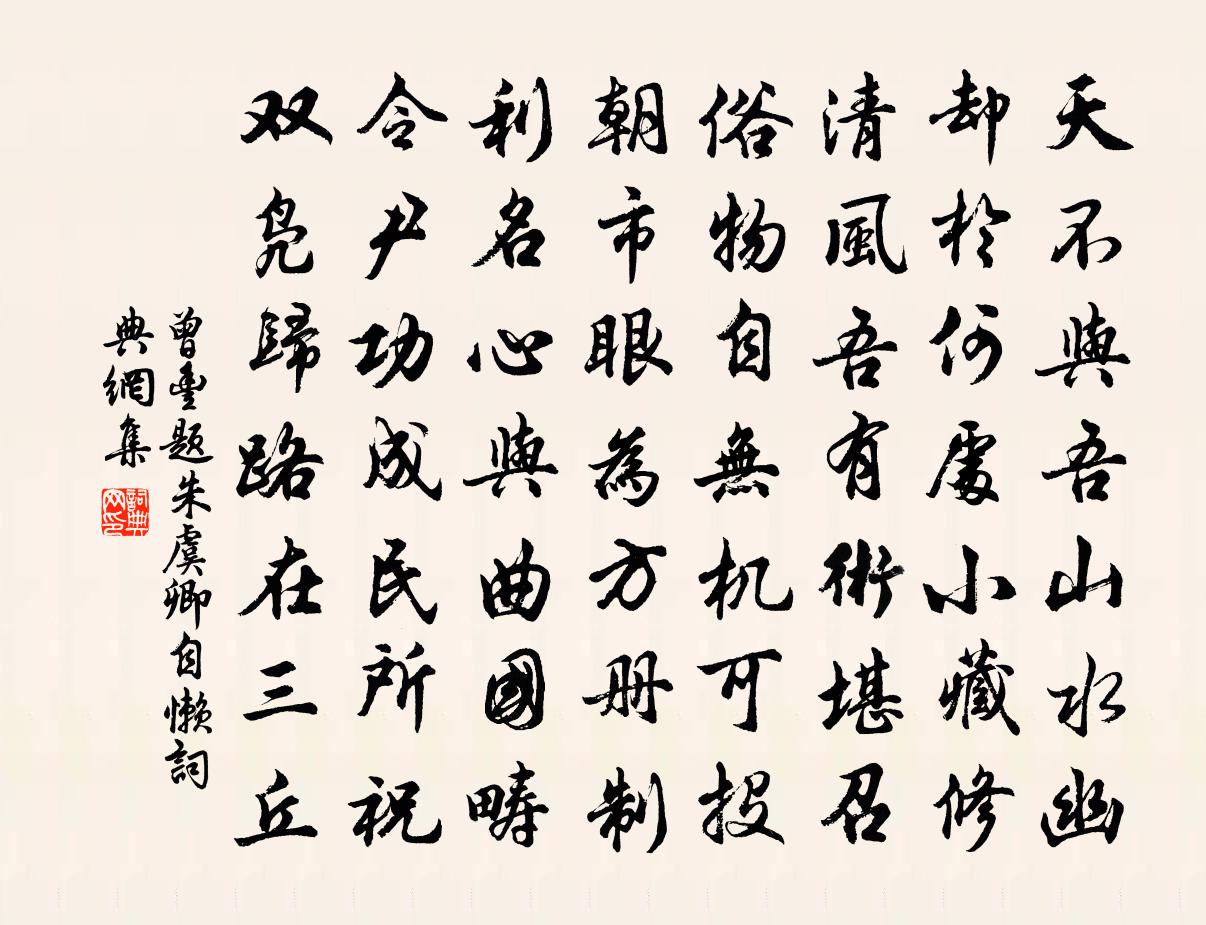 天不與吾山水幽
却於何處小藏修
清風吾有術堪召
俗物自無机可投
朝市眼為方册制
利名心與曲國疇
令尹功成民所祝
双凫歸路在三丘
曾豐題朱虞卿自懒詞
典網集
詞典
网印